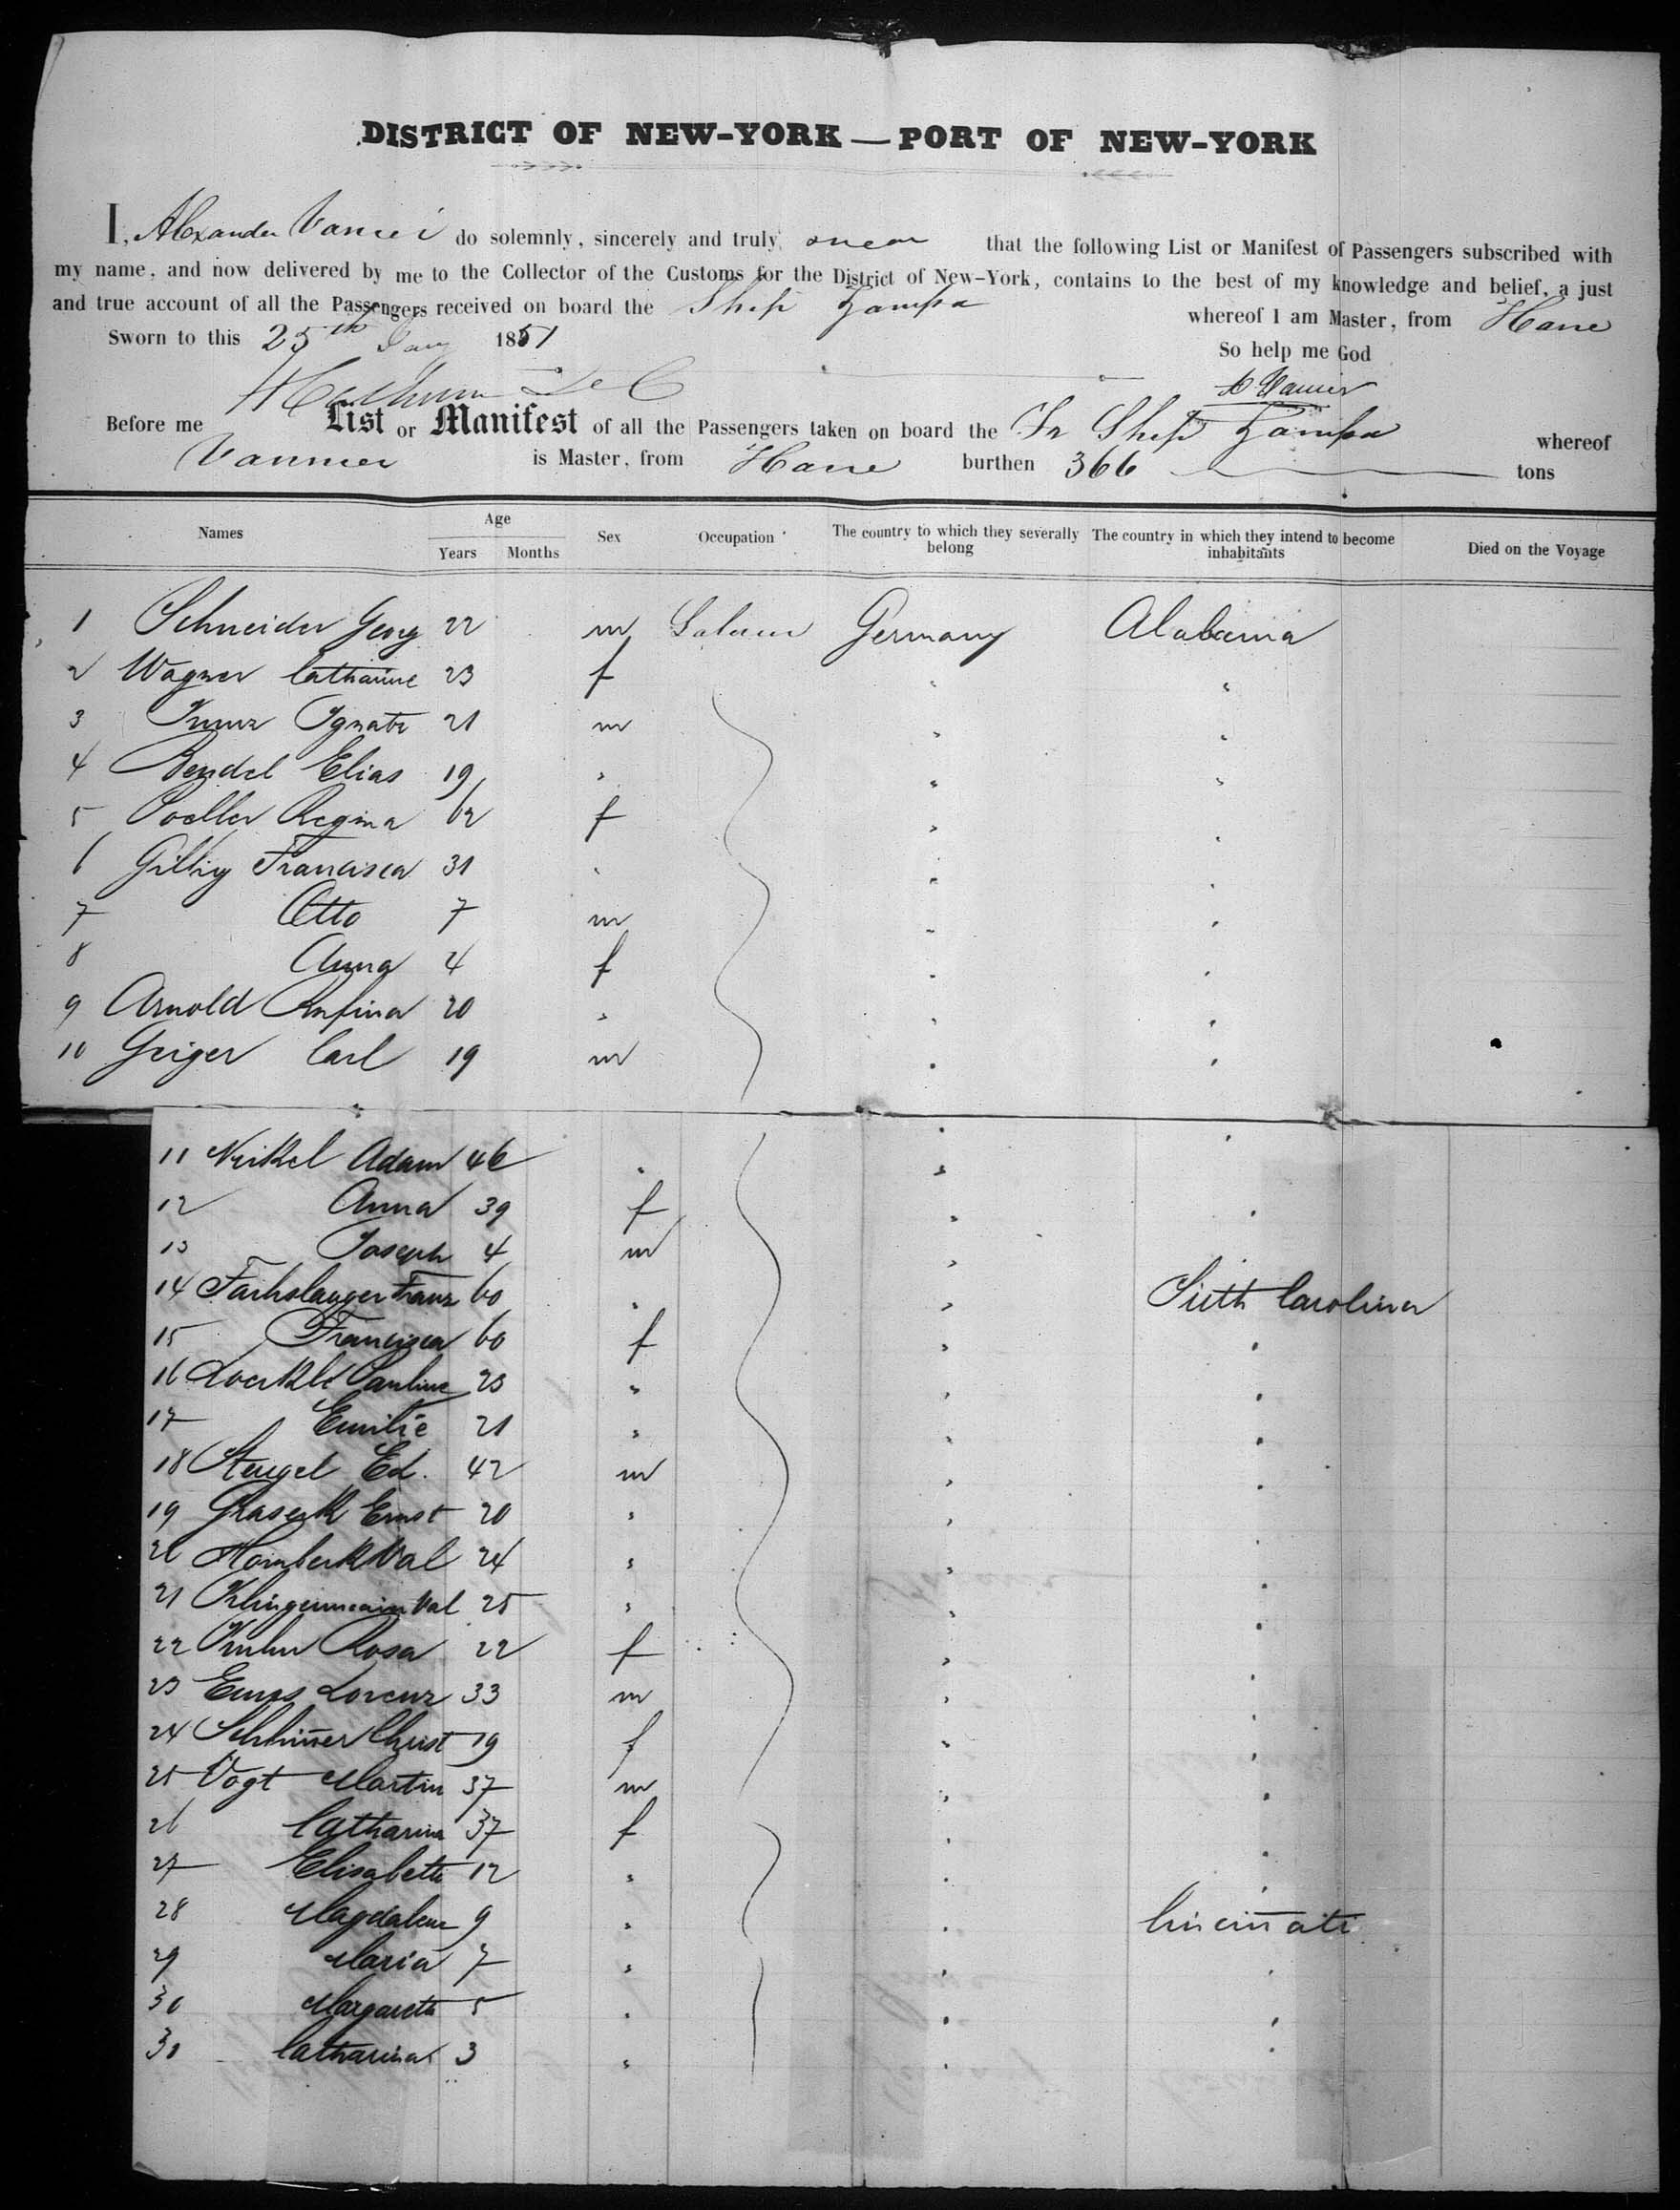 DISTRICT OF NEW-YORK — PORT OF NEW-YORK
I, Alexander Vannier do solemnly, sincerely and truly swear that the following List or Manifest of Passengers subscribed with
my name, and now delivered by me to the Collector of the Customs for the District of New-York, contains to the best of my knowledge and belief, a just
and true account of all the Passengers received on board the Ship Zampa whereof I am Master, from Havre
Sworn to this 25th Jany 1851 So help me God
A Vannier
Before me List or Manifest of all the Passengers taken on board the Fr Ship Zampa whereof
Vannier is Master, from Havre burthen 366 tons
Names Age Sex Occupation The country to which they severally belong The country in which they intend to become inhabitants Died on the Voyage
Years Months
1 Schneider Georg 22 m Germany Alabama
2 Wagner Catharine 23 f " "
3 Ignatz 21 m " "
4 Bendel Elias 19 " " "
5 Regina 62 f " "
6 Francisca 31 " " "
7 Otto 7 m " "
8 Anna 4 f " "
9 Arnold Rufina 20 " " "
10 Geiger Carl 19 m " "
11 Neikel Adam 46 " " "
12 Anna 39 f " "
13 Joseph 4 m " "
14 Franz 60 " " Carolina
15 Francisca 60 f " "
16 Pauline 23 " " "
17 Emilie 21 " " "
18 Stengel Ed. 42 m " "
19 Ernst 20 " " "
20 Val 24 " " "
21 Klingenmeier Val 25 " " "
22 Kuhn Rosa 22 f " "
23 Lorenz 33 m " "
24 Christ 19 f " "
25 Vogt Martin 37 m " "
26 Catharina 37 f " "
27 Elisabetha 12 " " "
28 Magdalena 9 " " Cincin̄ati
29 Maria 7 " " "
30 Margaretha 5 " " "
30 Catharina 3 " " "